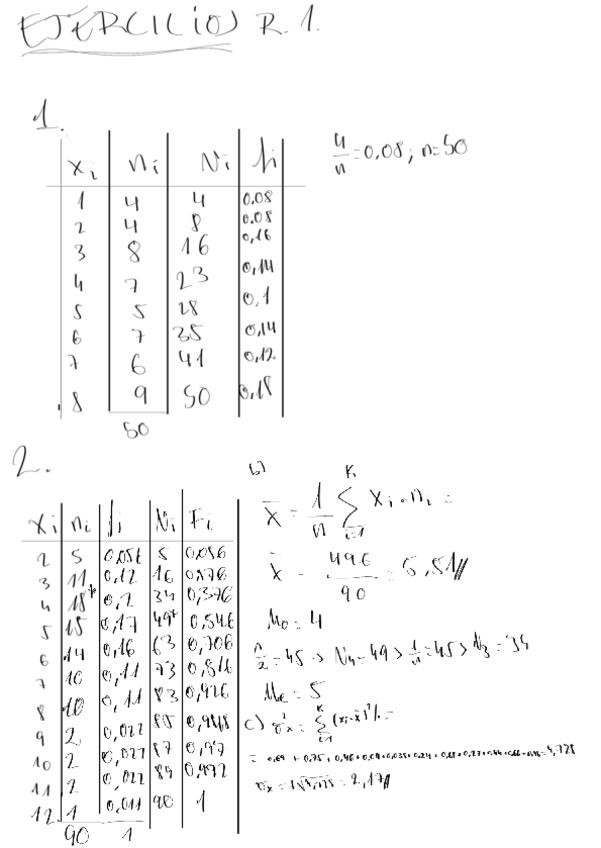 EJERCICIOS R.1.
1.
xi ni Ni fi
1 4 4 0.08
2 4 8 0.08
3 8 16 0,16
4 7 23 0,14
5 5 28 0,1
6 7 35 0,14
7 6 41 0,12
8 9 50 0,18
50
4/n = 0,08; n=50
2.
xi ni fi Ni Fi
2 5 0,056 5 0,056
3 11 0,12 16 0,176
4 18* 0,2 34 0,376
5 15 0,17 49* 0,546
6 14 0,16 63 0,706
7 10 0,11 73 0,816
8 10 0,11 83 0,926
9 2 0,022 85 0,948
10 2 0,022 87 0,97
11 2 0,022 89 0,992
12 1 0,011 90 1
90 1
b)
x̄ = 1/n Σ K i=1 xi · ni =
x̄ = 496/90 = 5,51
Mo = 4
n/2 = 45 → N4 = 49 > = 45 > N3 = 34
Me = 5
c) σ²x = Σ K i=1 (xi-x̄)² fi =
σx = = 2,17